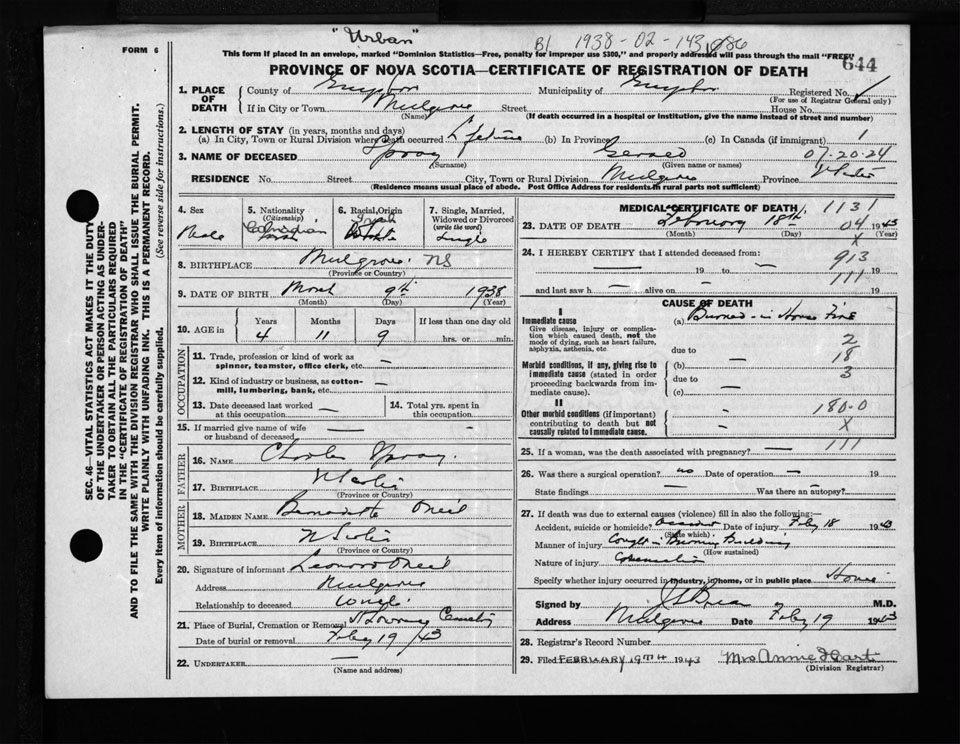 "Urban"
B/ 1938-02-143,086
FORM 6
This form if placed in an envelope, marked "Dominion Statistics—Free, penalty for improper use $300," and properly addressed will pass through the mail "FREE"
644
PROVINCE OF NOVA SCOTIA—CERTIFICATE OF REGISTRATION OF DEATH
1. PLACE OF DEATH
County of Guysboro Municipality of Guysboro Registered No.
(For use of Registrar General only)
If in City or Town Mulgrave Street House No.
(Name) (If death occurred in a hospital or institution, give the name instead of street and number)
2. LENGTH OF STAY (in years, months and days)
(a) In City, Town or Rural Division where death occurred Lifetime (b) In Province (c) In Canada (if immigrant) 1
3. NAME OF DECEASED Gerald 07-20-24
(Surname) (Given name or names)
RESIDENCE No. Street City, Town or Rural Division Mulgrave Province N Scotia
(Residence means usual place of abode. Post Office Address for residents in rural parts not sufficient)
4. Sex
Male
5. Nationality (Citizenship)
Canadian
6. Racial Origin
Irish
7. Single, Married, Widowed or Divorced (write the word)
Single
8. BIRTHPLACE Mulgrave NS
(Province or Country)
9. DATE OF BIRTH March 9th 1938
(Month) (Day) (Year)
10. AGE in Years Months Days If less than one day old
4 11 9 hrs. or min.
OCCUPATION
11. Trade, profession or kind of work as spinner, teamster, office clerk, etc. —
12. Kind of industry or business, as cotton-mill, lumbering, bank, etc. —
13. Date deceased last worked at this occupation —
14. Total yrs. spent in this occupation
15. If married give name of wife or husband of deceased —
FATHER
16. NAME Charles
17. BIRTHPLACE N Scotia
(Province or Country)
MOTHER
18. MAIDEN NAME Bernadette O'Neil
19. BIRTHPLACE N Scotia
(Province or Country)
20. Signature of informant Leonard O'Neil
Address Mulgrave
Relationship to deceased uncle
21. Place of Burial, Cremation or Removal Cemetery
Date of burial or removal Feby 19 /43
22. UNDERTAKER —
(Name and address)
MEDICAL CERTIFICATE OF DEATH 1131
23. DATE OF DEATH February 18th 1943
04
(Month) (Day) (Year)
X
24. I HEREBY CERTIFY that I attended deceased from: 913
— 19 to — 19
and last saw h — alive on — 111 19
CAUSE OF DEATH
I
Immediate cause (a) Burned in House Fire
Give disease, injury or complication which caused death, not the mode of dying, such as heart failure, asphyxia, asthenia, etc.
2
due to — 18
Morbid conditions, if any, giving rise to immediate cause (stated in order proceeding backwards from immediate cause).
(b) 3
due to —
(c)
II
Other morbid conditions (if important) contributing to death but not causally related to immediate cause.
180.0
X
25. If a woman, was the death associated with pregnancy? — 111
26. Was there a surgical operation? no Date of operation — 19
State findings — Was there an autopsy?
27. If death was due to external causes (violence) fill in also the following:
Accident, suicide or homicide? Accident Date of injury Feby 18 1943
(State which)
Manner of injury Caught in Burning Building
(How sustained)
Nature of injury
Specify whether injury occurred in industry, in home, or in public place Home
Signed by M.D.
Address Mulgrave Date Feby 19 1943
28. Registrar's Record Number
29. Filed FEBRUARY 19TH 1943 Mrs Annie Hart
(Division Registrar)
SEC. 46—VITAL STATISTICS ACT MAKES IT THE DUTY
OF THE UNDERTAKER OR PERSON ACTING AS UNDER-
TAKER TO OBTAIN ALL THE PARTICULARS REQUIRED
IN THE "CERTIFICATE OF REGISTRATION OF DEATH"
AND TO FILE THE SAME WITH THE DIVISION REGISTRAR WHO SHALL ISSUE THE BURIAL PERMIT.
WRITE PLAINLY WITH UNFADING INK. THIS IS A PERMANENT RECORD.
Every item of information should be carefully supplied. (See reverse side for instructions.)